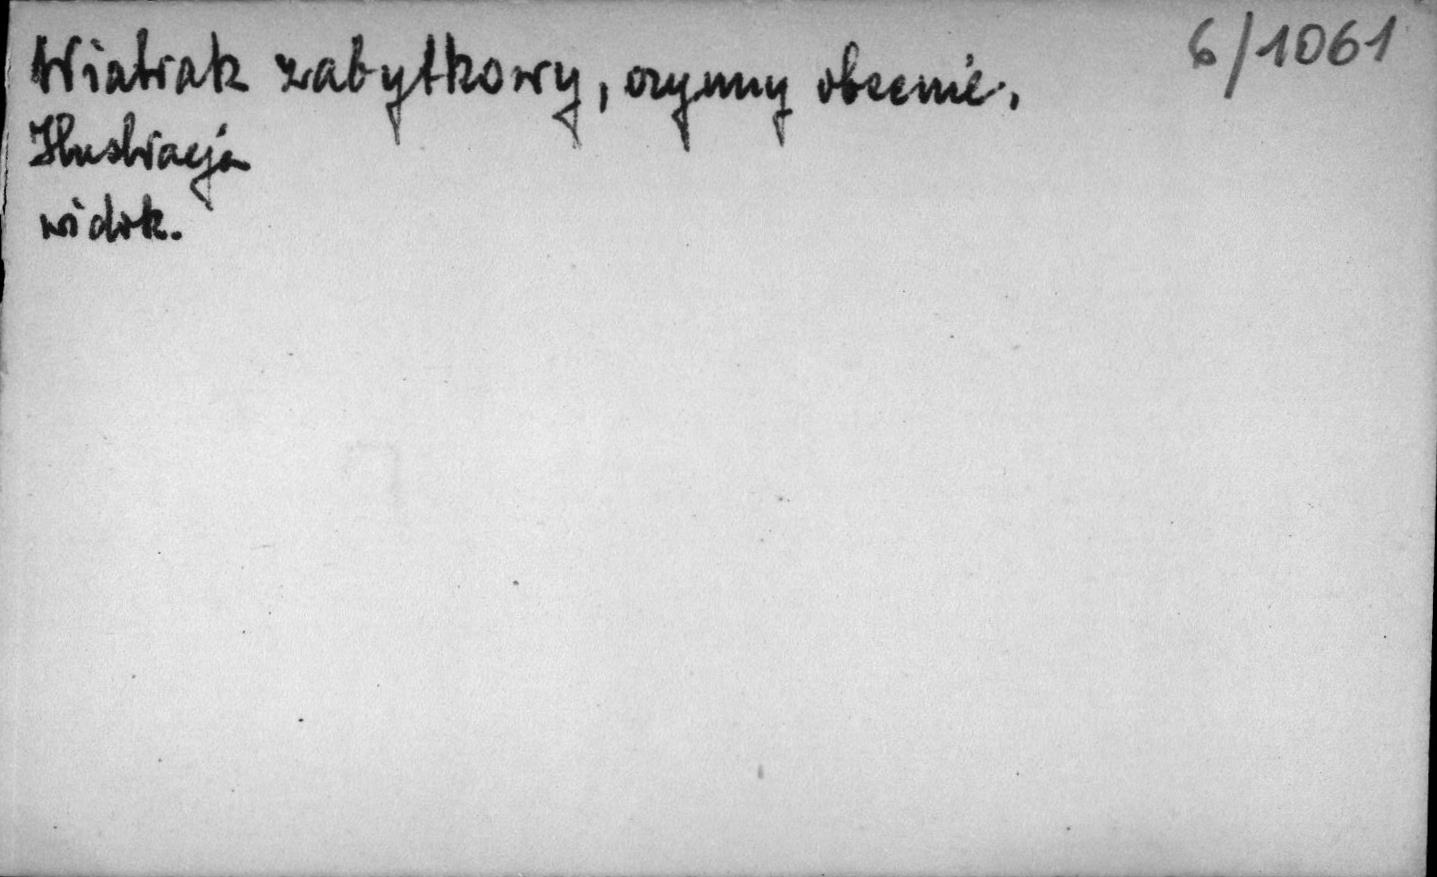 Wiatrak zabytkowy, czynny obecnie. 6/1061
Ilustracja
widok.